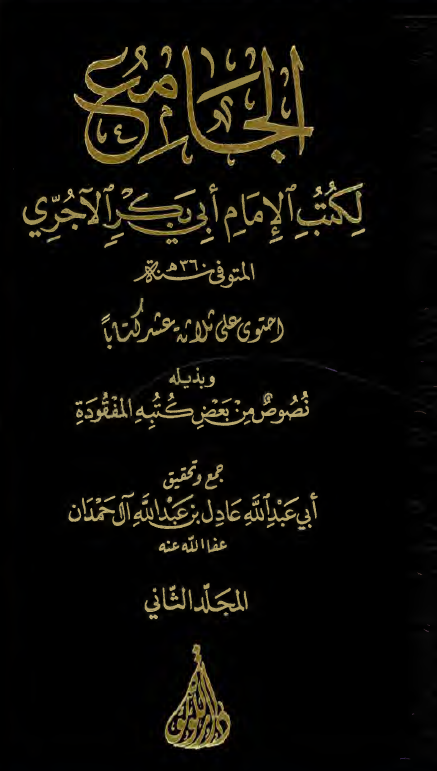 الجَامِع
لِكُتُبِ الإِمَامِ أَبِي بَكْرٍ الآجُرِّي
المتوفى سنة ٣٦٠هـ
احتوى على ثلاثة عشر كتاباً
وبذيله
نُصُوصٌ مِنْ بَعْضِ كُتُبِهِ المَفْقُودَةِ
جمع وتحقيق
أَبي عَبْدِ اللهِ عَادِل بن عَبْدِ اللهِ آل حَمْدَان
عفا الله عنه
المجَلّد الثّاني
دار اللؤلؤة